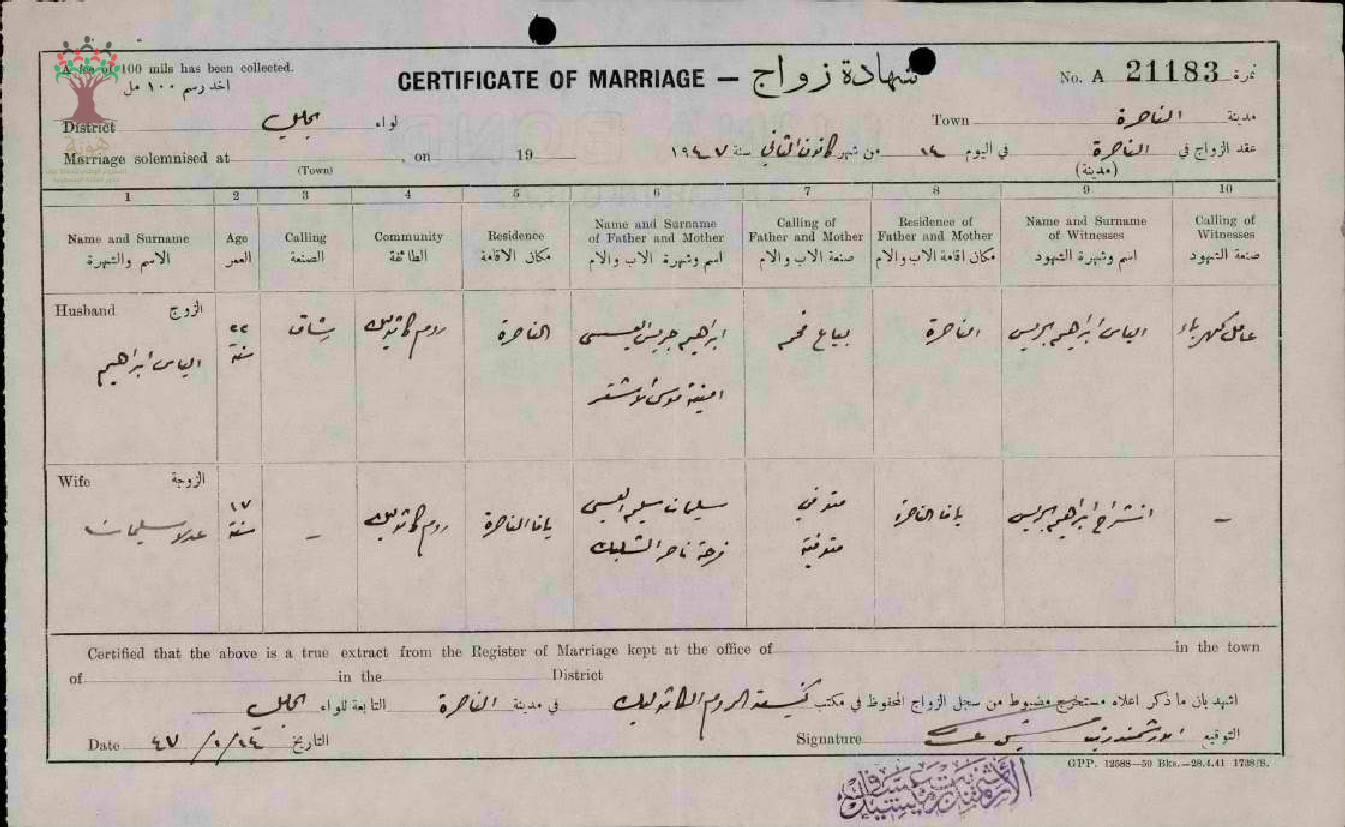 A fee of 100 mils has been collected.
اخذ رسم ١٠٠ مل
CERTIFICATE OF MARRIAGE — شهادة زواج
No. A 21183 نمرة
District الجليل لواء
Town الناصرة مدينة
Marriage solemnised at , on 19
(Town)
عقد الزواج في الناصرة في اليوم ١٤ من شهر كانون الثاني سنة ١٩٤٧
(مدينة)
1 2 3 4 5 6 7 8 9 10
Name and Surname
الاسم والشهرة
Age
العمر
Calling
الصنعة
Community
الطائفة
Residence
مكان الاقامة
Name and Surname
of Father and Mother
اسم وشهرة الاب والام
Calling of
Father and Mother
صنعة الاب والام
Residence of
Father and Mother
مكان اقامة الاب والام
Name and Surname
of Witnesses
اسم وشهرة الشهود
Calling of
Witnesses
صنعة الشهود
Husband الزوج
الياس ابراهيم
٢٢
سنة
روم كاثوليك
الناصرة
ابراهيم جريس العيسى
امينة موسى الاشقر
بياع فحم
الناصرة
الياس ابراهيم جريس
عامل كهرباء
Wife الزوجة
عدلا سليمان
١٧
سنة
–
روم كاثوليك
يافا الناصرة
سليمان سليم العيسى
فرحة ناصر
متوفي
متوفية
يافا الناصرة
انشراح ابراهيم جريس
–
Certified that the above is a true extract from the Register of Marriage kept at the office of in the town
of in the District
اشهد بان ما ذكر اعلاه مستخرج مضبوط من سجل الزواج المحفوظ في مكتب كنيسة الروم الكاثوليك في مدينة الناصرة التابعة للواء الجليل
Date ٤٧/١/١٤ التاريخ
Signature الارشمندريت التوقيع
GPP. 12588—50 Bks.—28.4.41 1738/S.